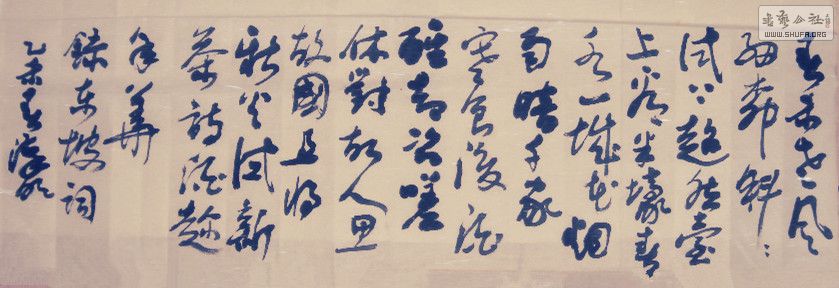 春未老風
細柳斜〻
试上超然臺
上看半壕春
水一城花烟
雨暗千家
寒食後酒
醒却咨嗟
休對故人思
故國且将
新火试新
茶詩酒趁
年華
錄东坡词
乙未春
書藝公社
WWW.SHUFA.ORG